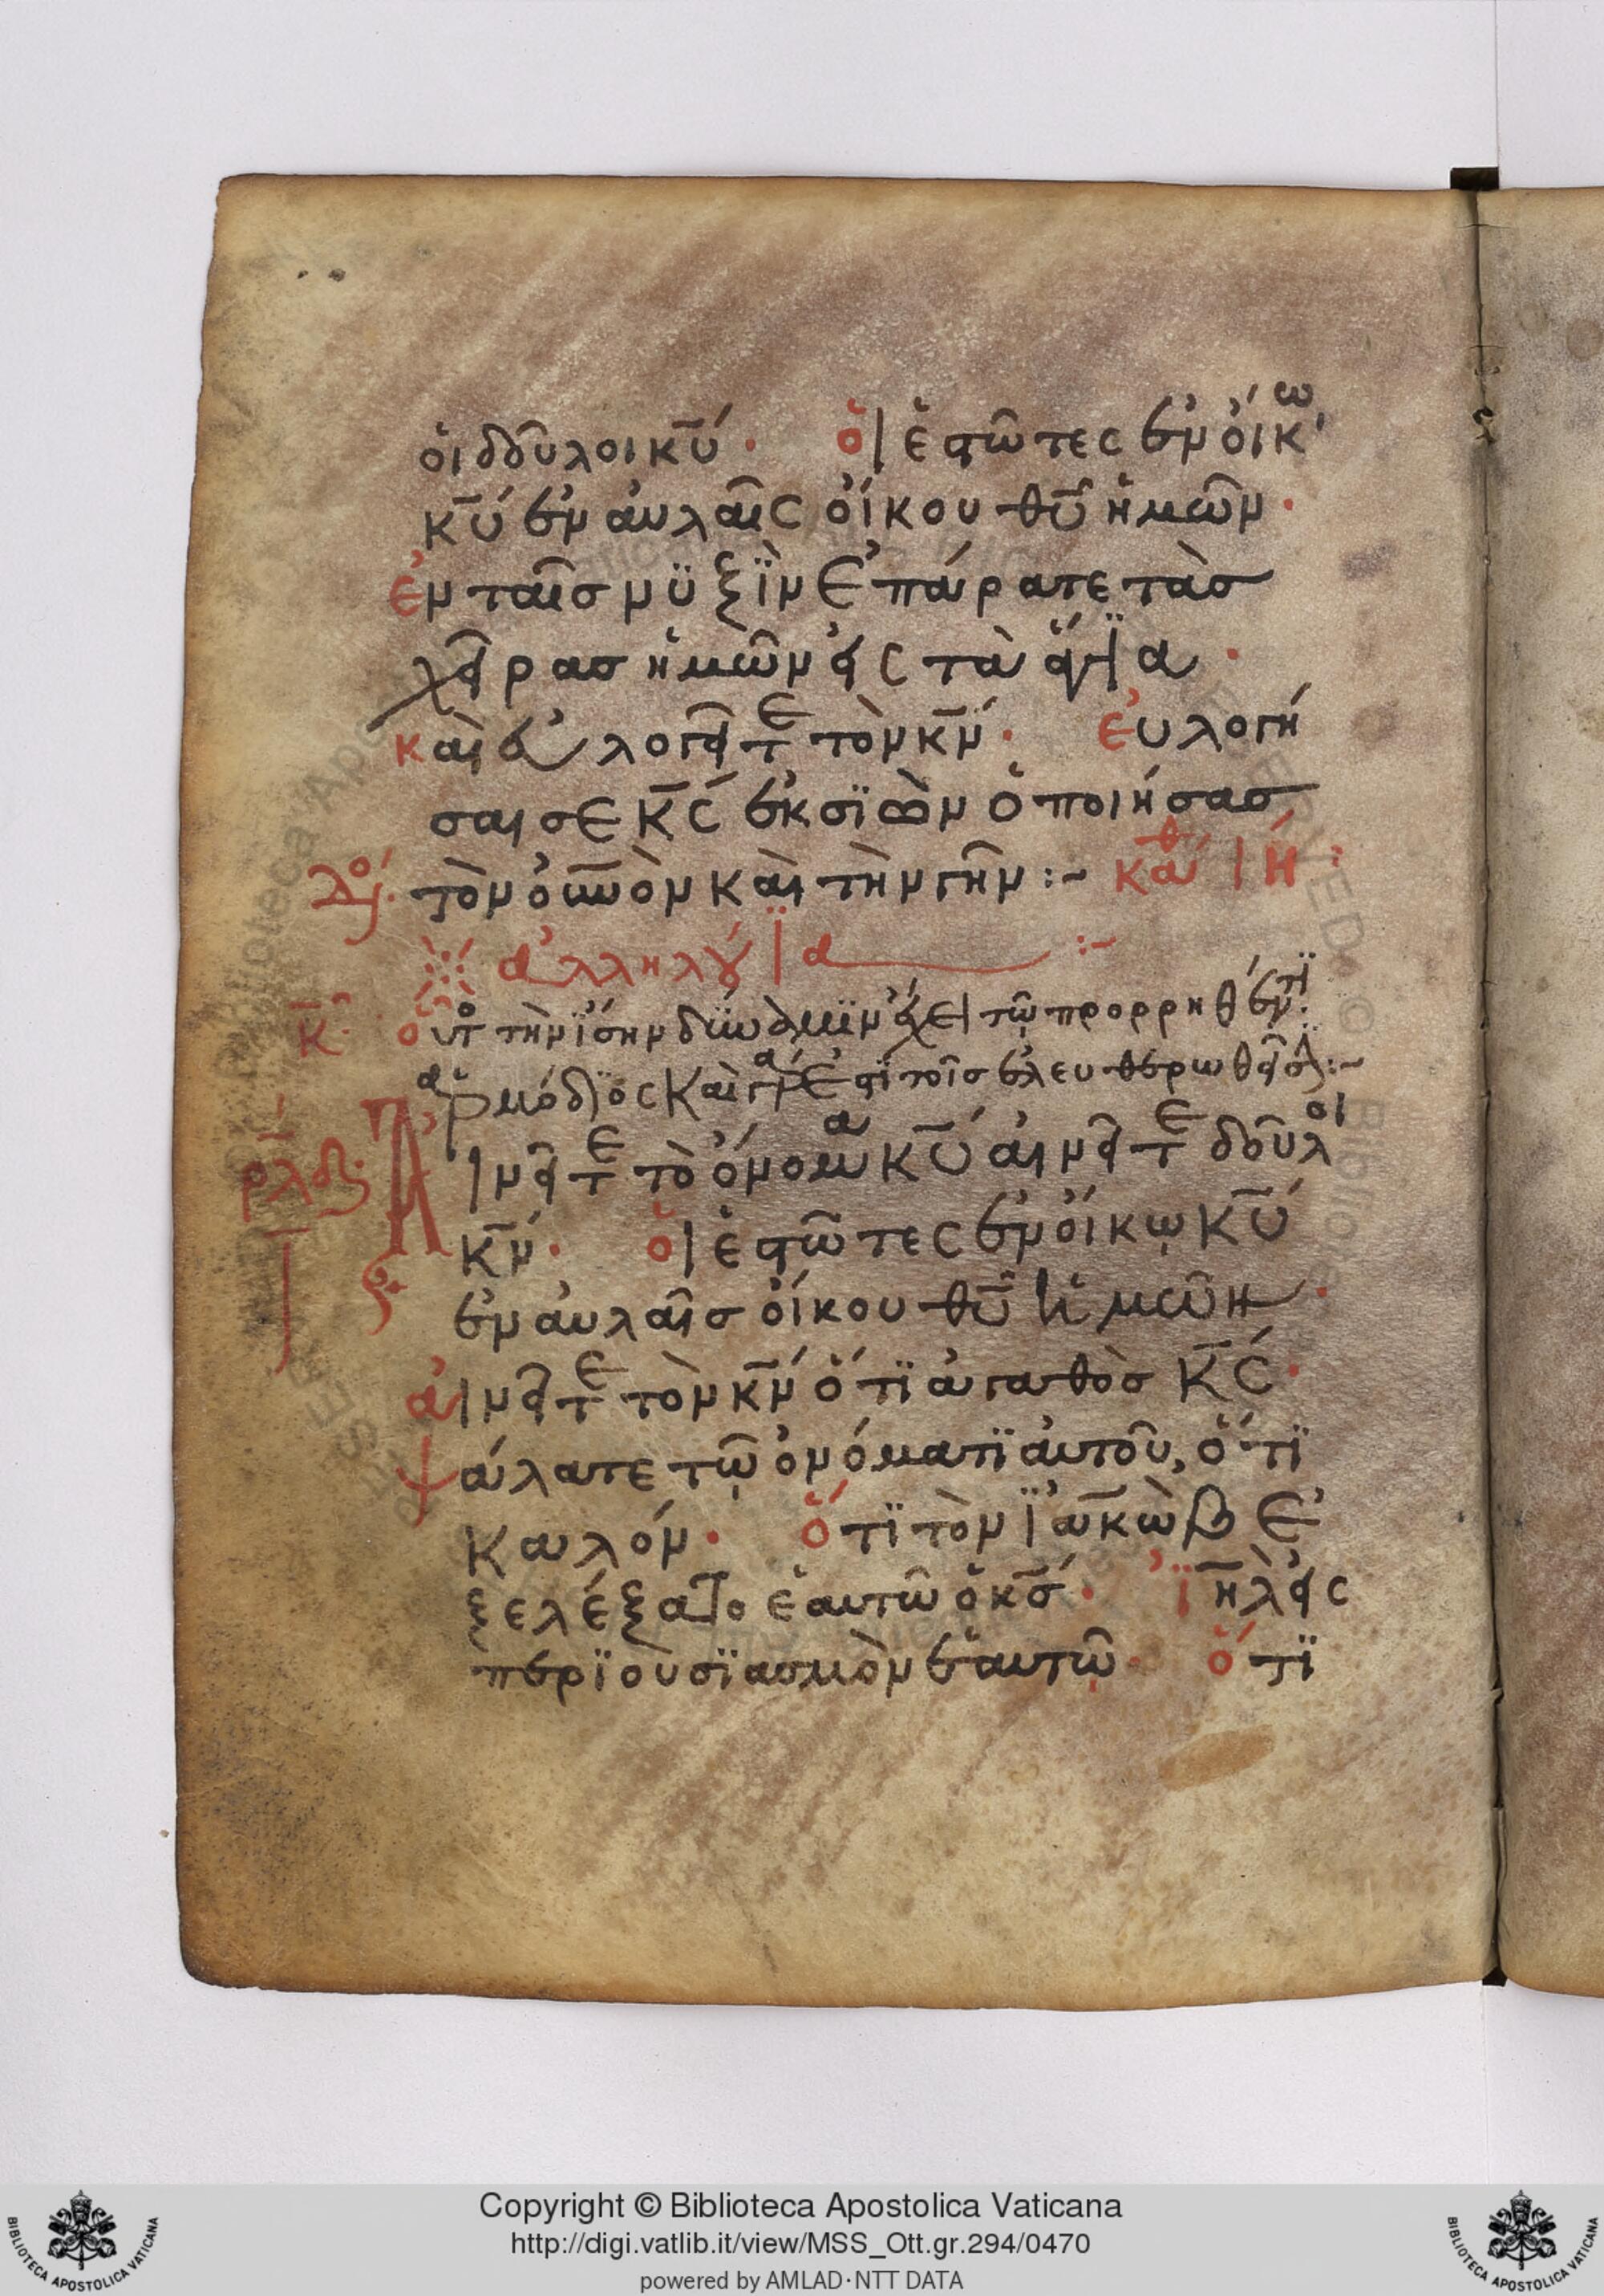 ὁι δδῦλοι κ̅ύ· ὁι ἑστῶτες ἐν ὀίκω
κ̅ύ ἐν ἀυλαῖς ὀίκου θ̅υ̂ ἡμῶν·
ἐν ταῖσ νϋξῒν ἐπάρατε τὰσ
χεῖρασ ἡμῶν ἐις τὰ ἅγϊα·
καὶ ἐυλογεῖτε τὸν κ̅ν́· ἐυλογή
σαι σε κ̅ς́ ἐκ σϊὼν ὁ ποιήσασ
τὸν ὀυνὸν καὶ τὴν γῆν :~ καθ ιη
ἀλληλούϊα :~
κ̅. ὁυτο τὴν ΐσην δύναμϊν ἔχει τῷ προρρηθέντϊ
ἁρμόδϊος καὶ γὰρ ἐστϊ τοῖσ ἐλευθερωθεῖσ :~
ρλδ Αἰνεῖτε τὸ ὄνομα κ̅ύ ἀινεῖτε δοῦλοι
κ̅ν́· ὁι ἑστῶτες ἐν ὀίκῳ κ̅ύ
ἐν ἀυλαῖσ ὀίκου θ̅υ̂ ἡμῶν·
ἀινεῖτε τὸν κ̅ν́ ὅτϊ ἀγαθὸσ κ̅ς́·
ψάλατε τῷ ὀνόματϊ ἀυτοῦ, ὅτϊ
καλόν· ὅτϊ τὸν ϊἀκὼβ ἐ
ξελέξατο ἑαυτῶ ὁ κ̅σ́· ϊ̅η̅λ̀ ἐις
περϊουσϊασμὸν ἑαυτῷ· ὅτϊ
Copyright © Biblioteca Apostolica Vaticana
http://digi.vatlib.it/view/MSS_Ott.gr.294/0470
powered by AMLAD·NTT DATA
BIBLIOTECA APOSTOLICA VATICANA
BIBLIOTECA APOSTOLICA VATICANA